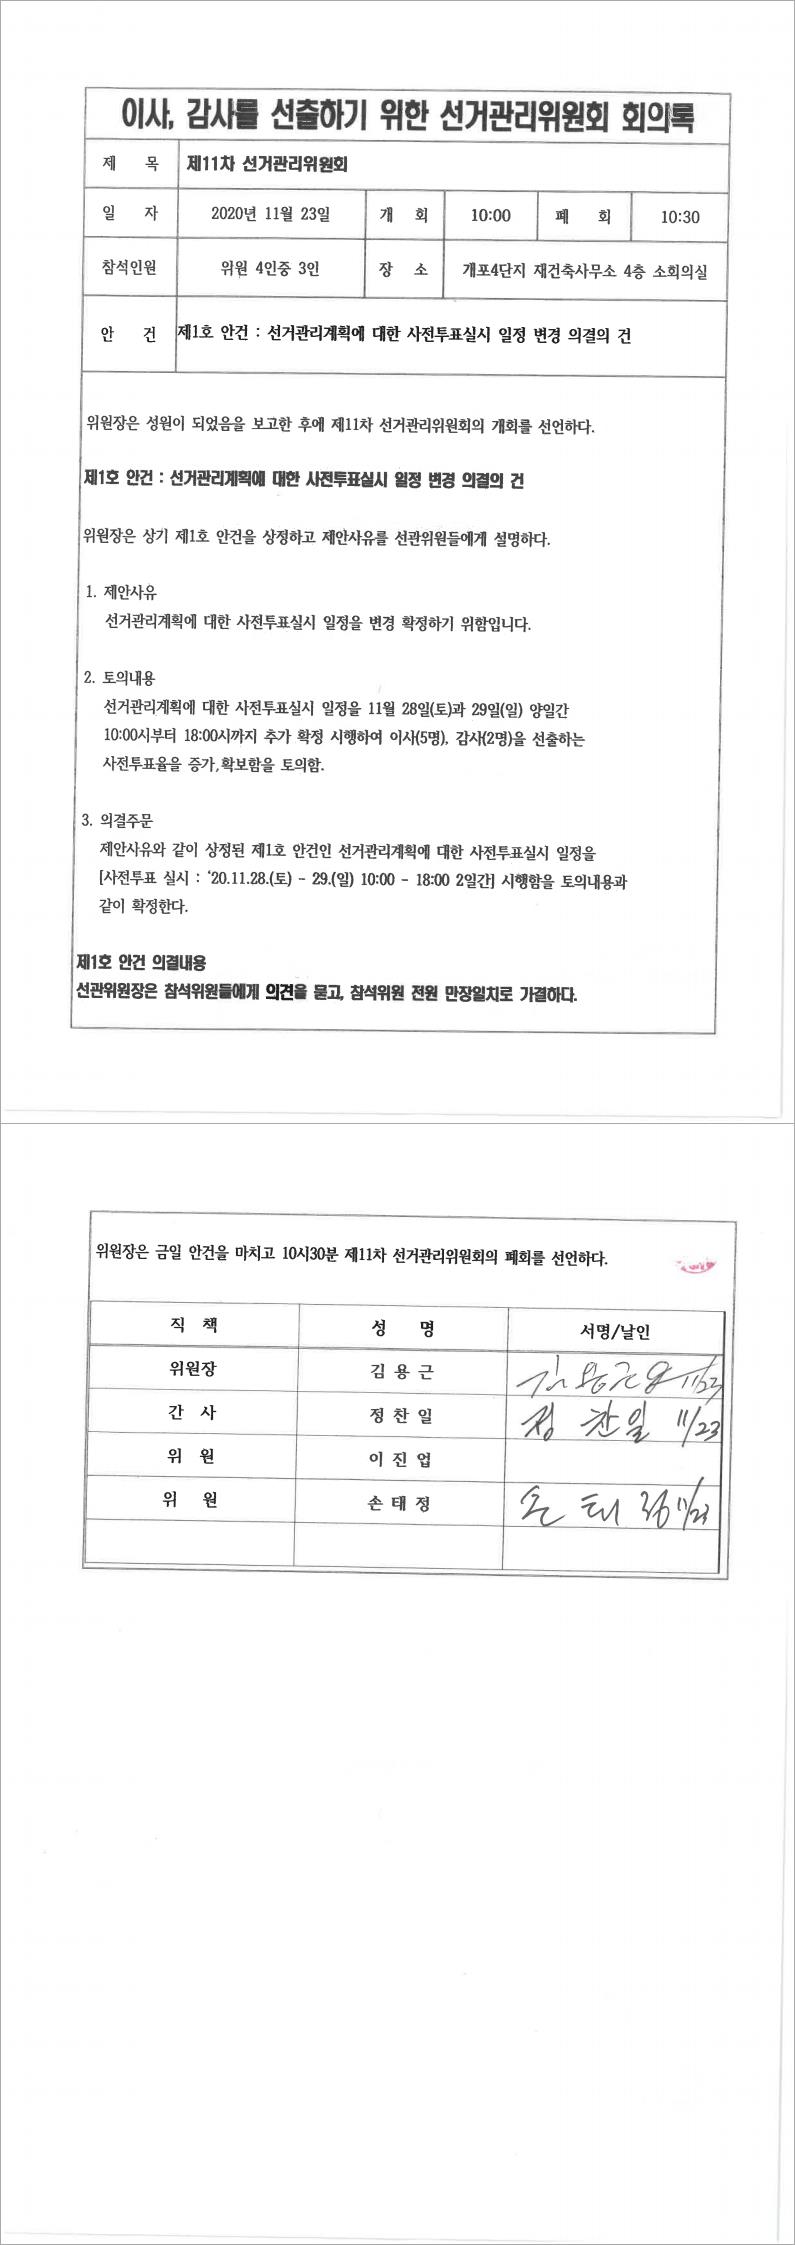 이사, 감사를 선출하기 위한 선거관리위원회 회의록
제 목 제11차 선거관리위원회
일 자 2020년 11월 23일 개 회 10:00 폐 회 10:30
참석인원 위원 4인중 3인 장 소 개포4단지 재건축사무소 4층 소회의실
안 건 제1호 안건 : 선거관리계획에 대한 사전투표실시 일정 변경 의결의 건
위원장은 성원이 되었음을 보고한 후에 제11차 선거관리위원회의 개회를 선언하다.
제1호 안건 : 선거관리계획에 대한 사전투표실시 일정 변경 의결의 건
위원장은 상기 제1호 안건을 상정하고 제안사유를 선관위원들에게 설명하다.
1. 제안사유
선거관리계획에 대한 사전투표실시 일정을 변경 확정하기 위함입니다.
2. 토의내용
선거관리계획에 대한 사전투표실시 일정을 11월 28일(토)과 29일(일) 양일간
10:00시부터 18:00시까지 추가 확정 시행하여 이사(5명), 감사(2명)을 선출하는
사전투표율을 증가,확보함을 토의함.
3. 의결주문
제안사유와 같이 상정된 제1호 안건인 선거관리계획에 대한 사전투표실시 일정을
[사전투표 실시 : ‘20.11.28.(토) - 29.(일) 10:00 - 18:00 2일간] 시행함을 토의내용과
같이 확정한다.
제1호 안건 의결내용
선관위원장은 참석위원들에게 의견을 묻고, 참석위원 전원 만장일치로 가결하다.
위원장은 금일 안건을 마치고 10시30분 제11차 선거관리위원회의 폐회를 선언하다.
직 책 성 명 서명/날인
위원장 김 용 근 김용근 11/23
간 사 정 찬 일 정 찬 일 11/23
위 원 이 진 업
위 원 손 태 정 손 태 정 11/23